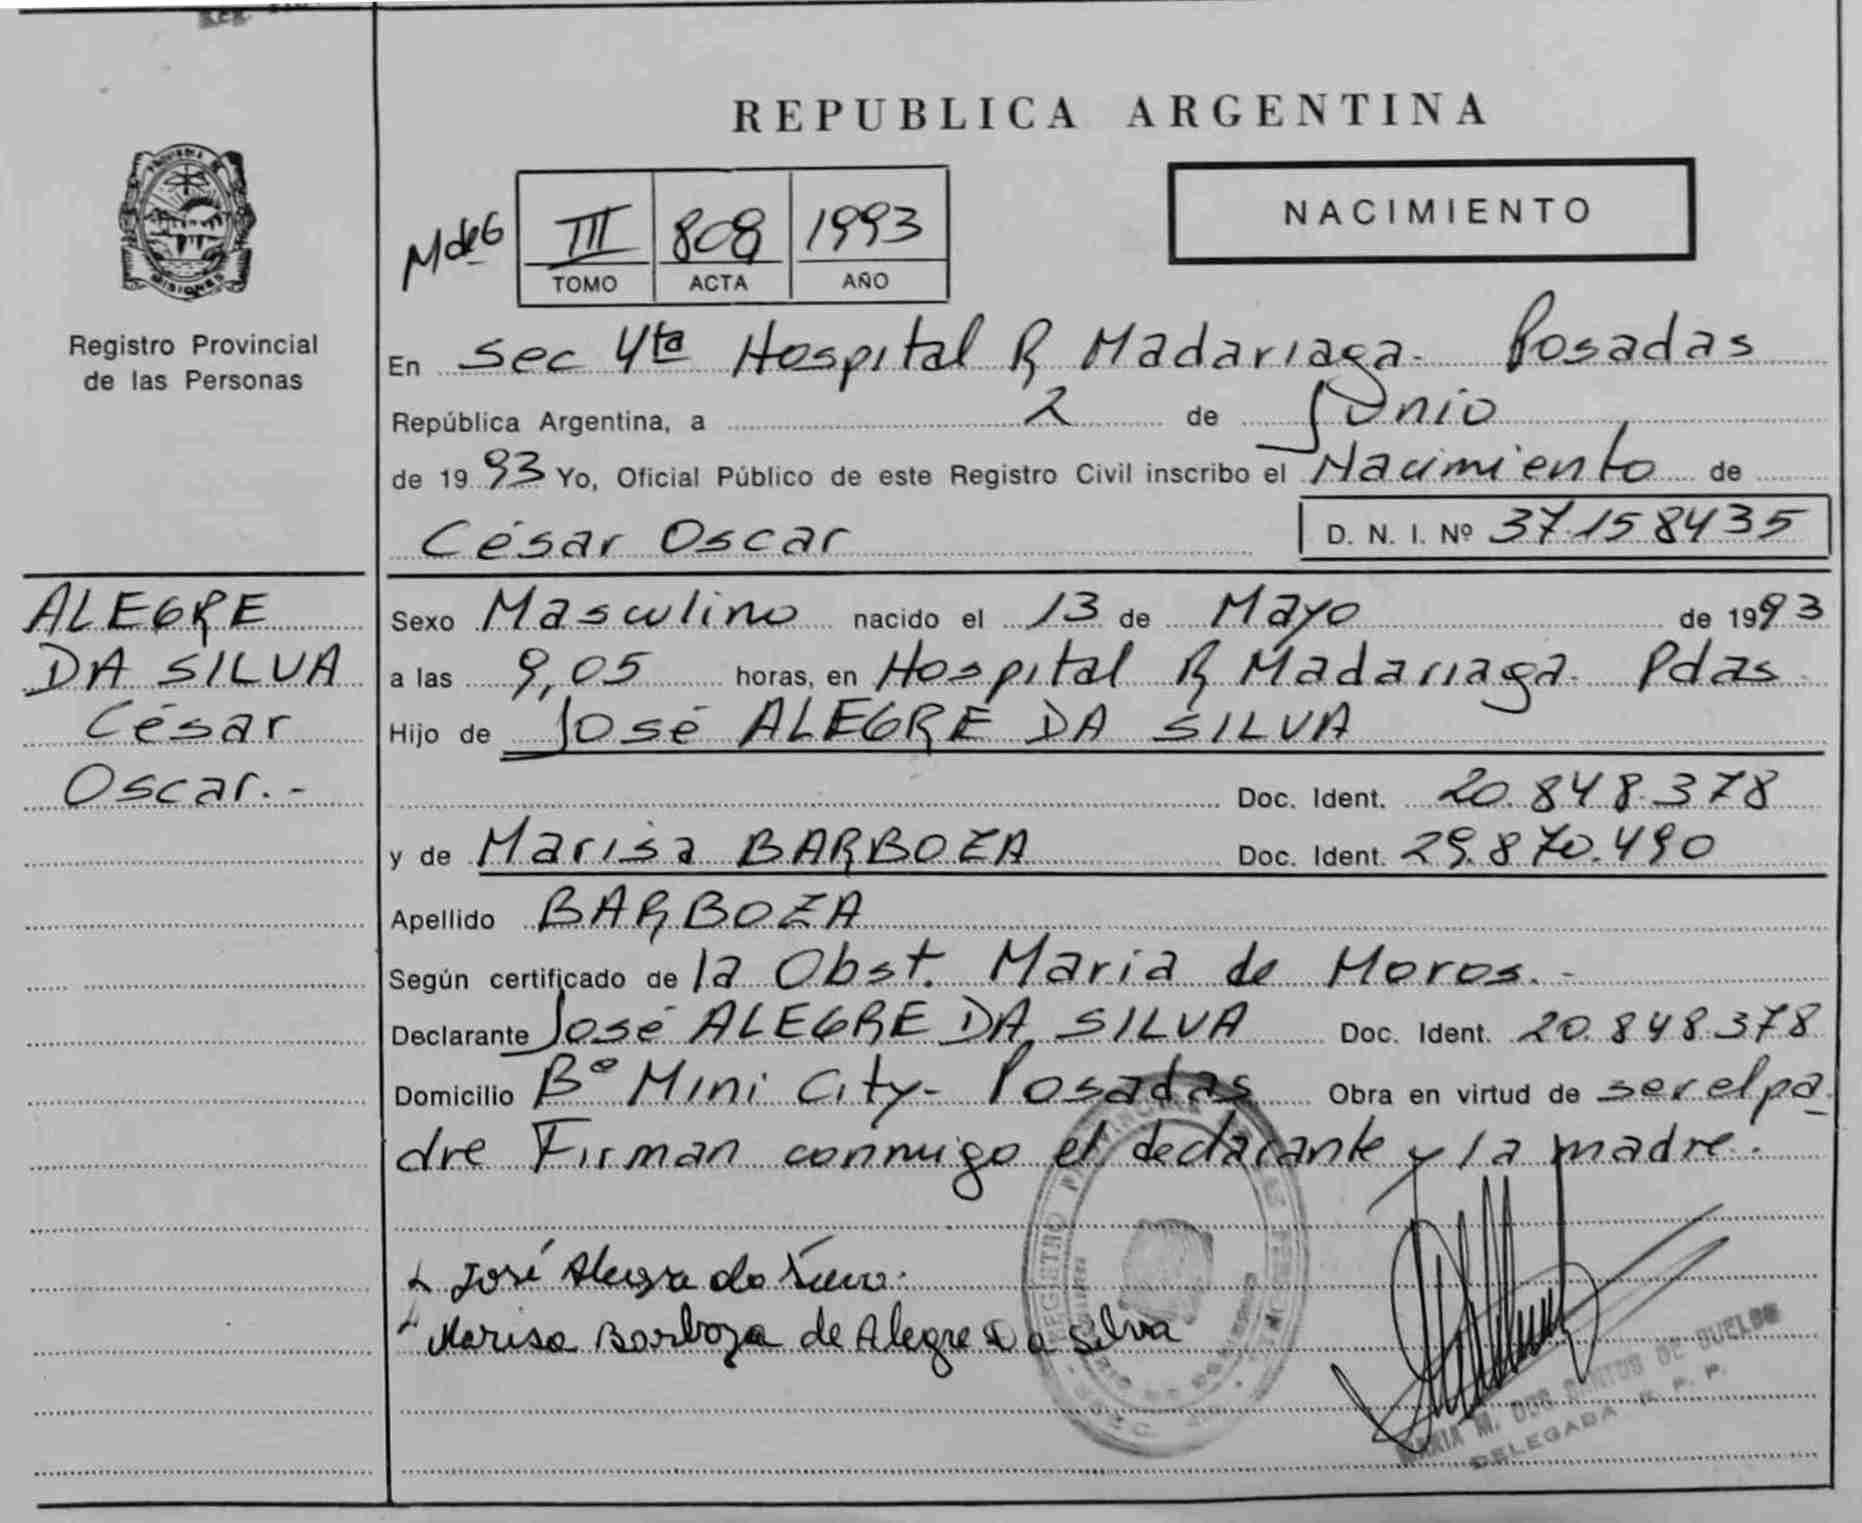 REPUBLICA ARGENTINA
NACIMIENTO
MdeG III 808 1993
TOMO ACTA AÑO
MISIONES
Registro Provincial
de las Personas
En Sec 4ta Hospital R Madariaga- Posadas
República Argentina, a 2 de Junio
de 1993 Yo, Oficial Público de este Registro Civil inscribo el Nacimiento de
César Oscar D. N. I. Nº 37.158435
ALEGRE
DA SILVA
César
Oscar.-
Sexo Masculino nacido el 13 de Mayo de 1993
a las 9,05 horas, en Hospital R Madariaga- Pdas.
Hijo de José ALEGRE DA SILVA
Doc. Ident. 20.848.378
y de Marisa BARBOZA Doc. Ident. 29.870.490
Apellido BARBOZA
Según certificado de la Obst. Maria de Moros.-
Declarante José ALEGRE DA SILVA Doc. Ident. 20.848378
Domicilio Bº Mini City- Posadas Obra en virtud de ser el pa-
dre Firman conmigo el declarante y la madre.-
José Alegre da
Marisa Barboza de Alegre Da Silva
REGISTRO PROVINCIAL DE LAS PERSONAS
MARIA M. DOS SANTOS DE DUELOS
DELEGADA R. P. P.